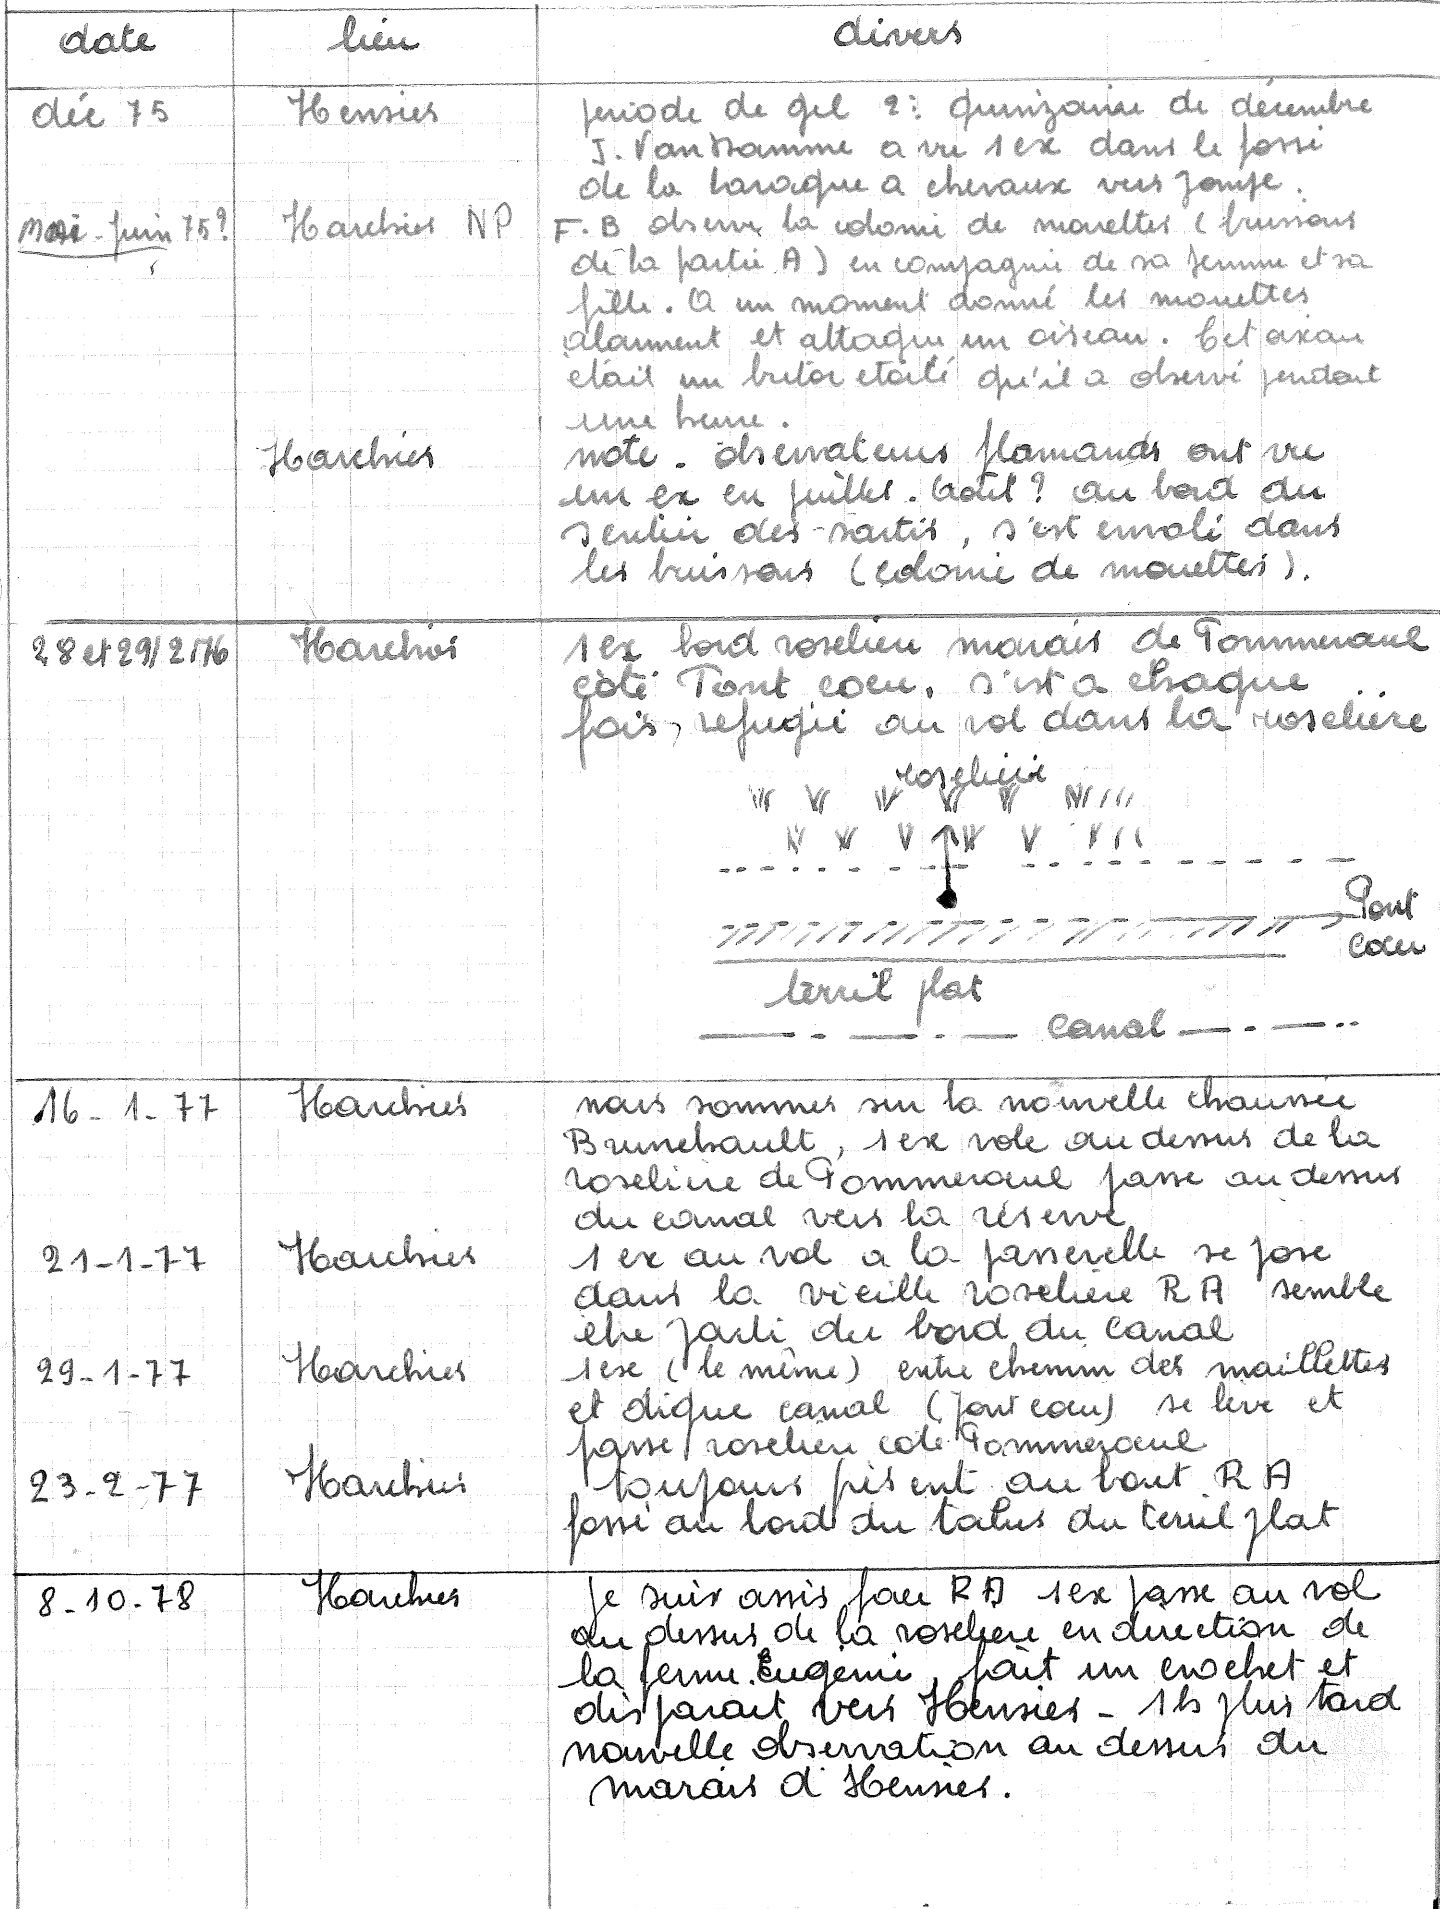 date lieu divers
déc 75 Hensies periode de gel 2: quinzaine de décembre
J. VanDamme a vu 1ex dans le fossé
de la baraque a chevaux vers pompe.
Mai - Juin 75? Harchies NP F.B observe la colonie de mouettes (buissons
de la partie A) en compagnie de sa femme et sa
fille. A un moment donné les mouettes
alarment et attaque un oiseau. Cet oiseau
était un butor etoilé qu'il a observé pendant
une heure.
Harchies note. observateurs flamands ont vu
un ex en juillet. Cadet? au bord du
sentier des sartis, s'est envolé dans
les buissons (colonie de mouettes).
28 et 29/2/76 Harchies 1ex bord roselière marais de Pommeroeul
côté Pont coeu. s'est a chaque
fois, refugié au vol dans la roselière
roselière
Pont
coeu
terril plat
canal
16-1-77 Harchies nous sommes sur la nouvelle chaussée
Brunehault, 1ex vole au dessus de la
roselière de Pommeroeul passe au dessus
du canal vers la réserve
21-1-77 Harchies 1ex au vol a la passerelle se pose
dans la vieille roselière RA semble
etre parti du bord du canal
29-1-77 Harchies 1ex (le même) entre chemin des maillettes
et digue canal (pont coeu) se leve et
passe roseliere coté Pommeroeul
23-2-77 Harchies toujours présent au bout RA
fossé au bord du talus du terril plat
8-10-78 Harchies Je suis assis face RA 1ex passe au vol
au dessus de la roseliere en direction de
la ferme Eugénie, fait un crochet et
disparait vers Hensies - 1h plus tard
nouvelle observation au dessus du
marais d'Hensies.